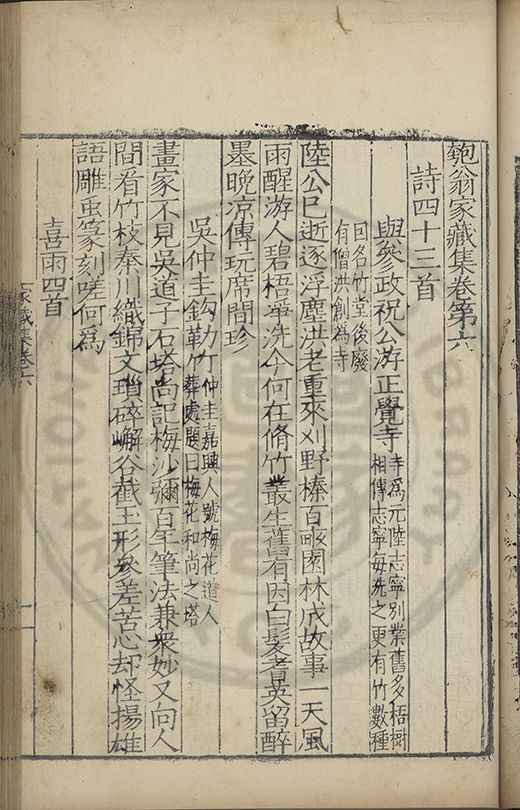 匏翁家藏集卷第六
詩四十三首
與參政祝公游正覺寺
寺爲元陸志寧別業舊多梧樹
相傳志寧每洗之更有竹數種
因名竹堂後廢
有僧洪創為寺
陸公已逝逐浮塵洪老重來刈野榛百畝園林成故事一天風
雨醒游人碧梧爭洗今何在脩竹叢生舊有因白髮耆英留醉
墨晚凉傳玩席間珍
吳仲圭鈎勒竹
仲圭嘉興人號梅花道人
葬處題曰梅花和尚之塔
畫家不見吳道子石塔尚記梅沙彌百年筆法兼衆妙又向人
間看竹枝秦川織錦文瑣碎嶰谷截玉形參差苦心却怪揚雄
語雕虫篆刻嗟何爲
喜雨四首
家藏集卷六